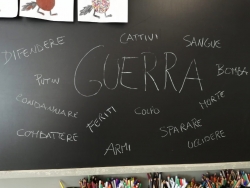 CATTIVI
SANGUE
DIFENDERE
GUERRA
BOMBA
PUTIN
CONDANNARE
FERITI
COLPO
MORTE
COMBATTERE
SPARARE
ARMI
UCCIDERE